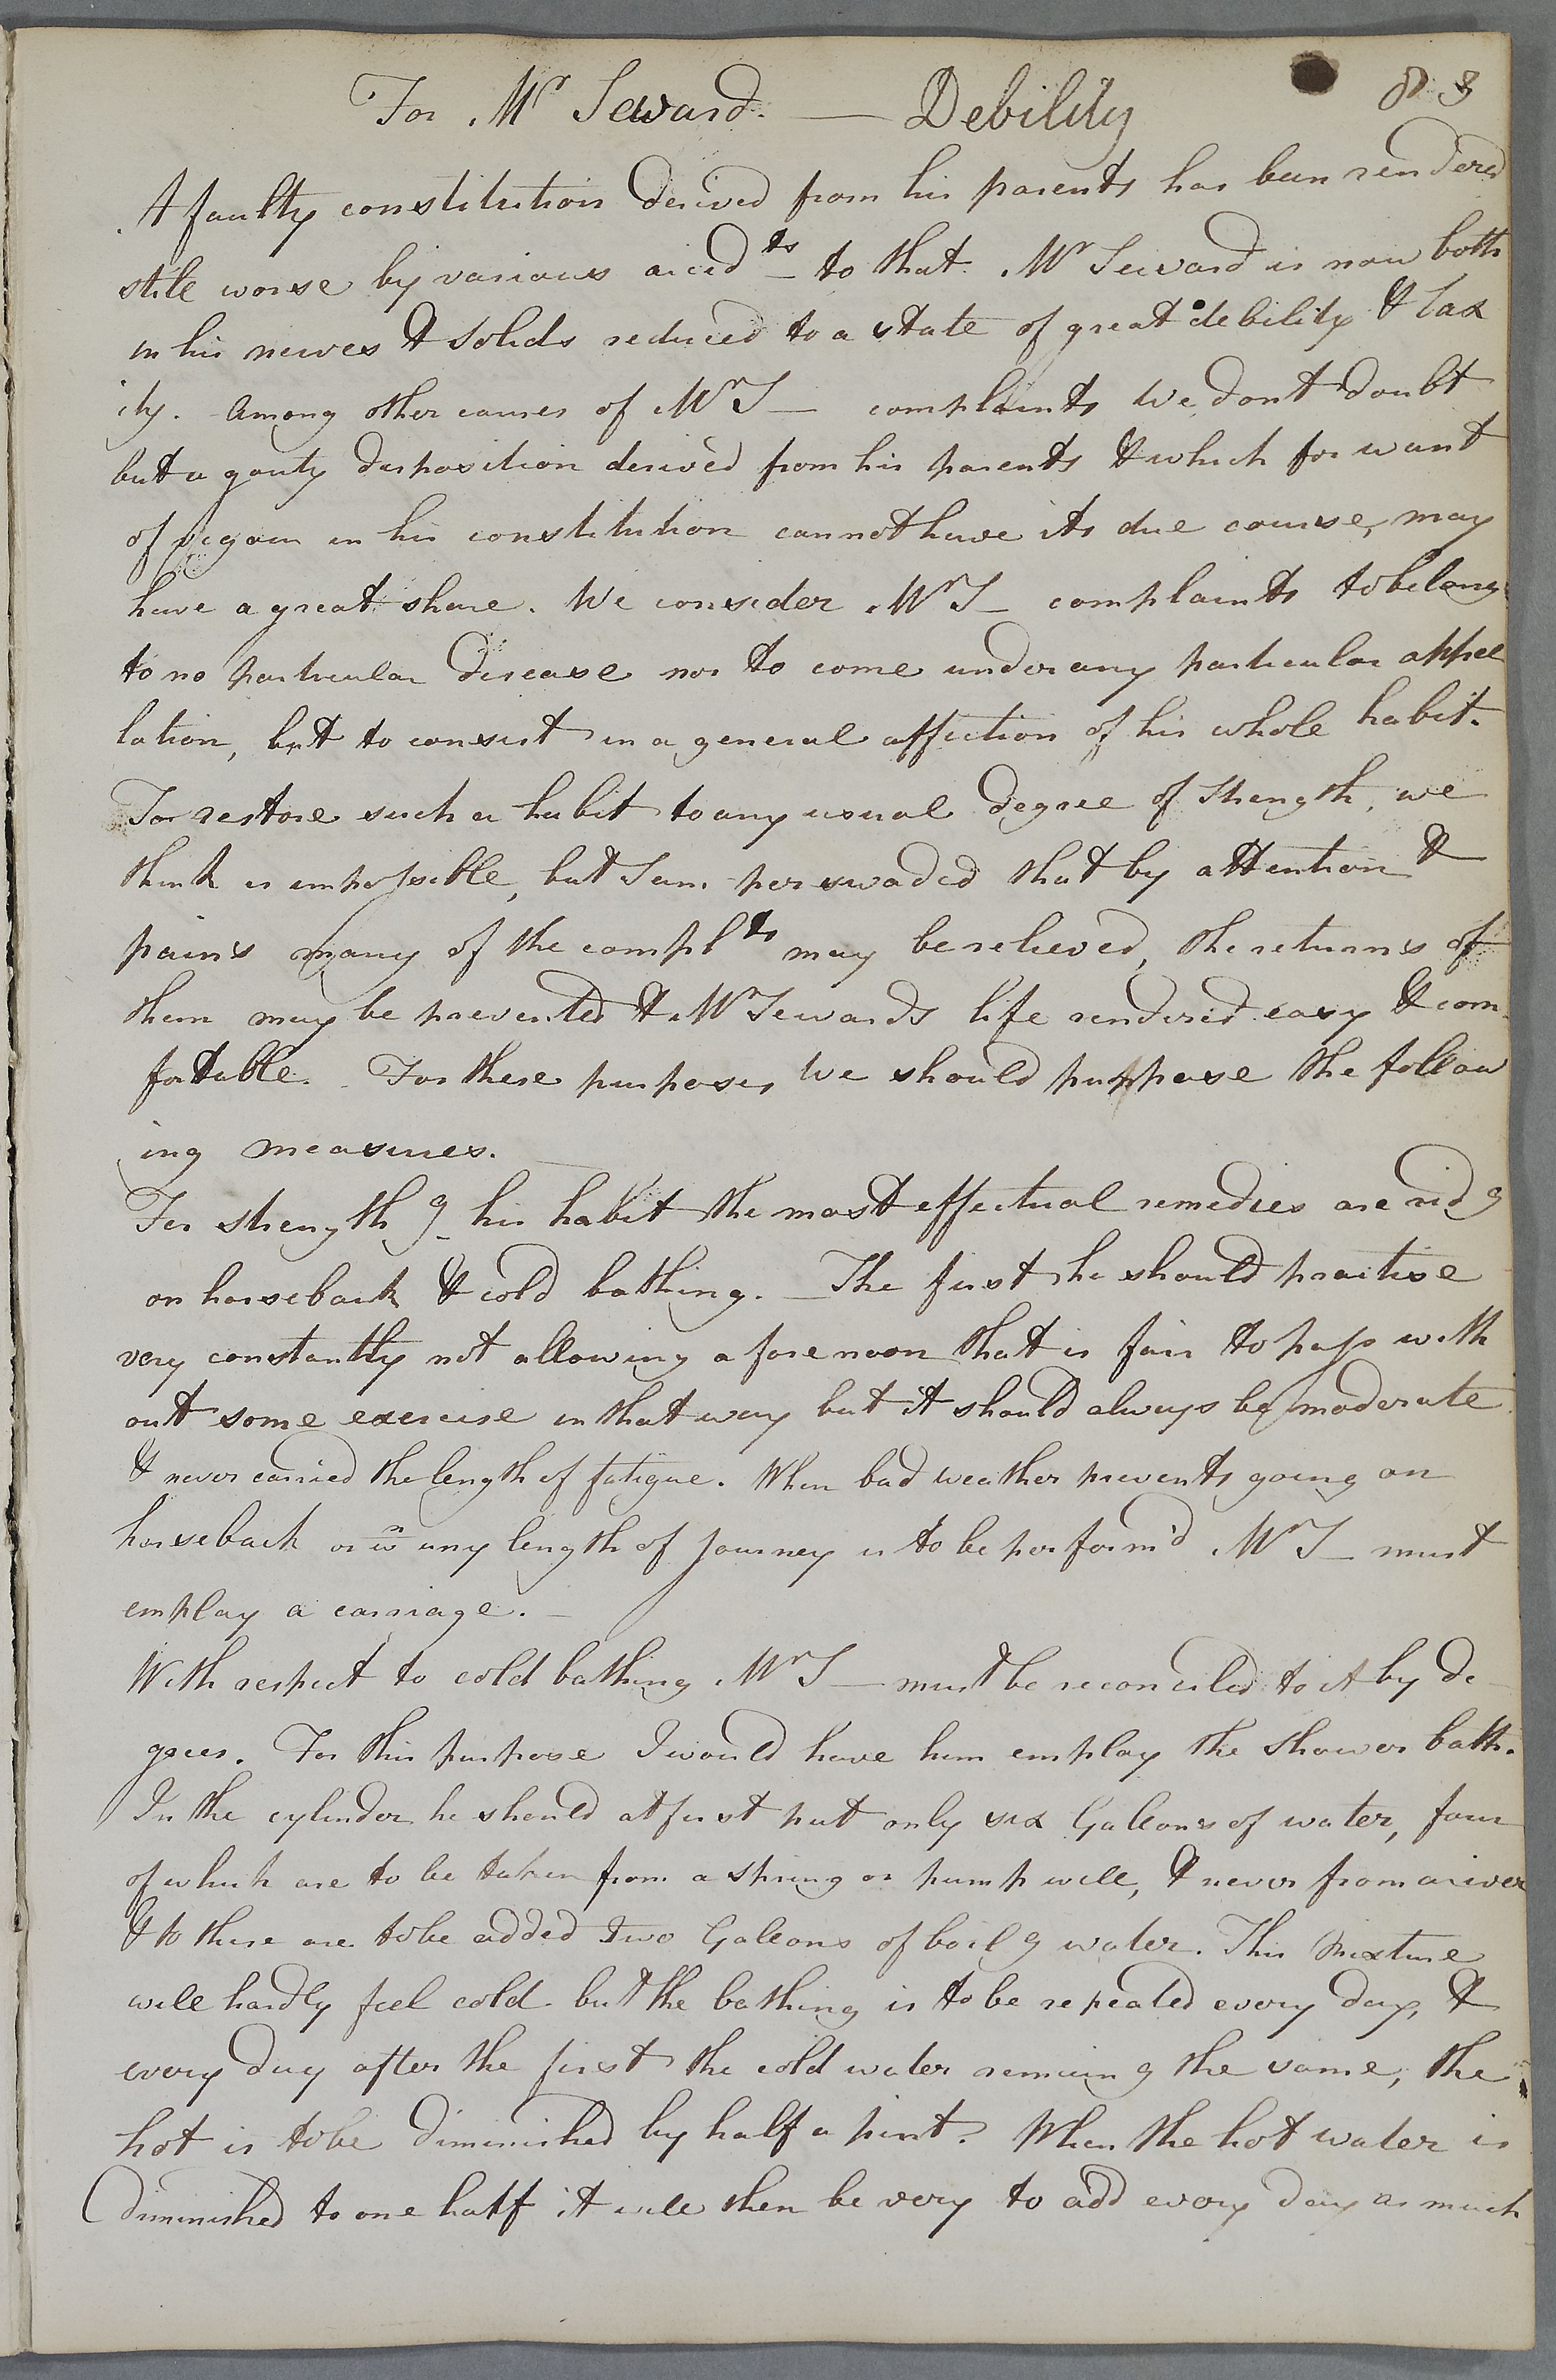 For Mr Seward. — Debility 83
A faulty constitution derived from his parents has been rendered
still worse by various accidts to that Mr Seward is now both
in his nerves & solids reduced to a state of great debility & lax
ity. Among other causes of Mr S— complaints We dont doubt
but a gouty disposition derived from his parents & which for want
of vigour in his constitution cannot have its due course, may
have a great share. We consider Mr S— complaints to belong
to no particular disease nor to come under any particular appel
lation, but to consist in a general affection of his whole habit.
To restore such a habit to any usual degree of strength, we
think is impossible, but I am perswaded that by attention &
pains many of the complts may be relieved, the returns of
them may be prevented & Mr Sewards life rendered easy & com
fortable. For these purposes We should purpose the follow
ing measures.
For strengthg his habit the most effectual remedies are ridg
on horseback & cold bathing. — The first he should practise
very constantly not allowing a forenoon that is fair to pass with
out some exercise in that way but it should always be moderate
& never carried the length of fatigue. When bad weather prevents going on
horseback or wn any length of journey is to be perform'd Mr S— must
employ a carriage. —
With respect to cold bathing Mr S— must be reconciled to it by de
grees. For this purpose I would have him employ the shower bath.
In the cylinder he should at first put only six Gallons of water, four
of which are to be taken from a spring or pump well, & never from a river
& to these are to be added Two Gallons of boilg water. This mixture
will hardly feel cold but the bathing is to be repeated every day, &
every day after the first the cold water remaing the same, the
hot is to be diminished by half a pint. When the hot water is
diminished to one half it will then be very to add every day as much